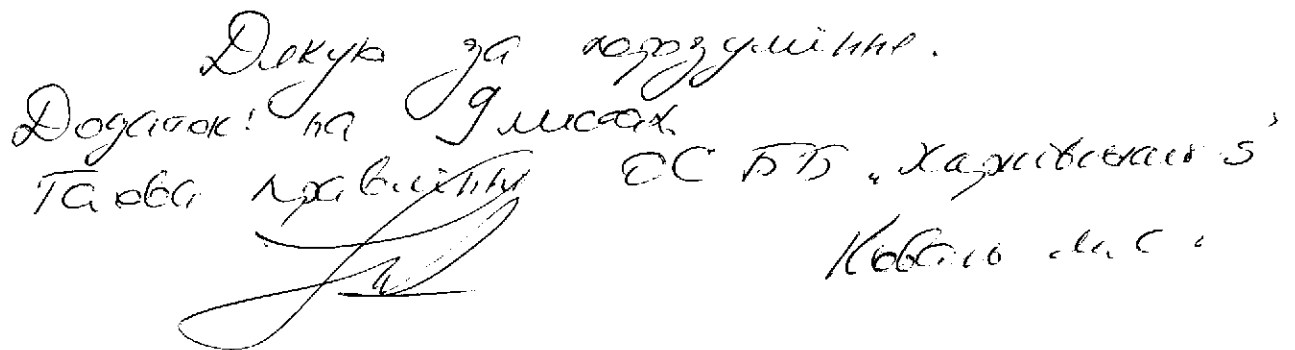 Дякую за порозуміння.
Додаток: на 9 листах.
Голова правління ОСББ „Харківська 5"
Коваль М.С.